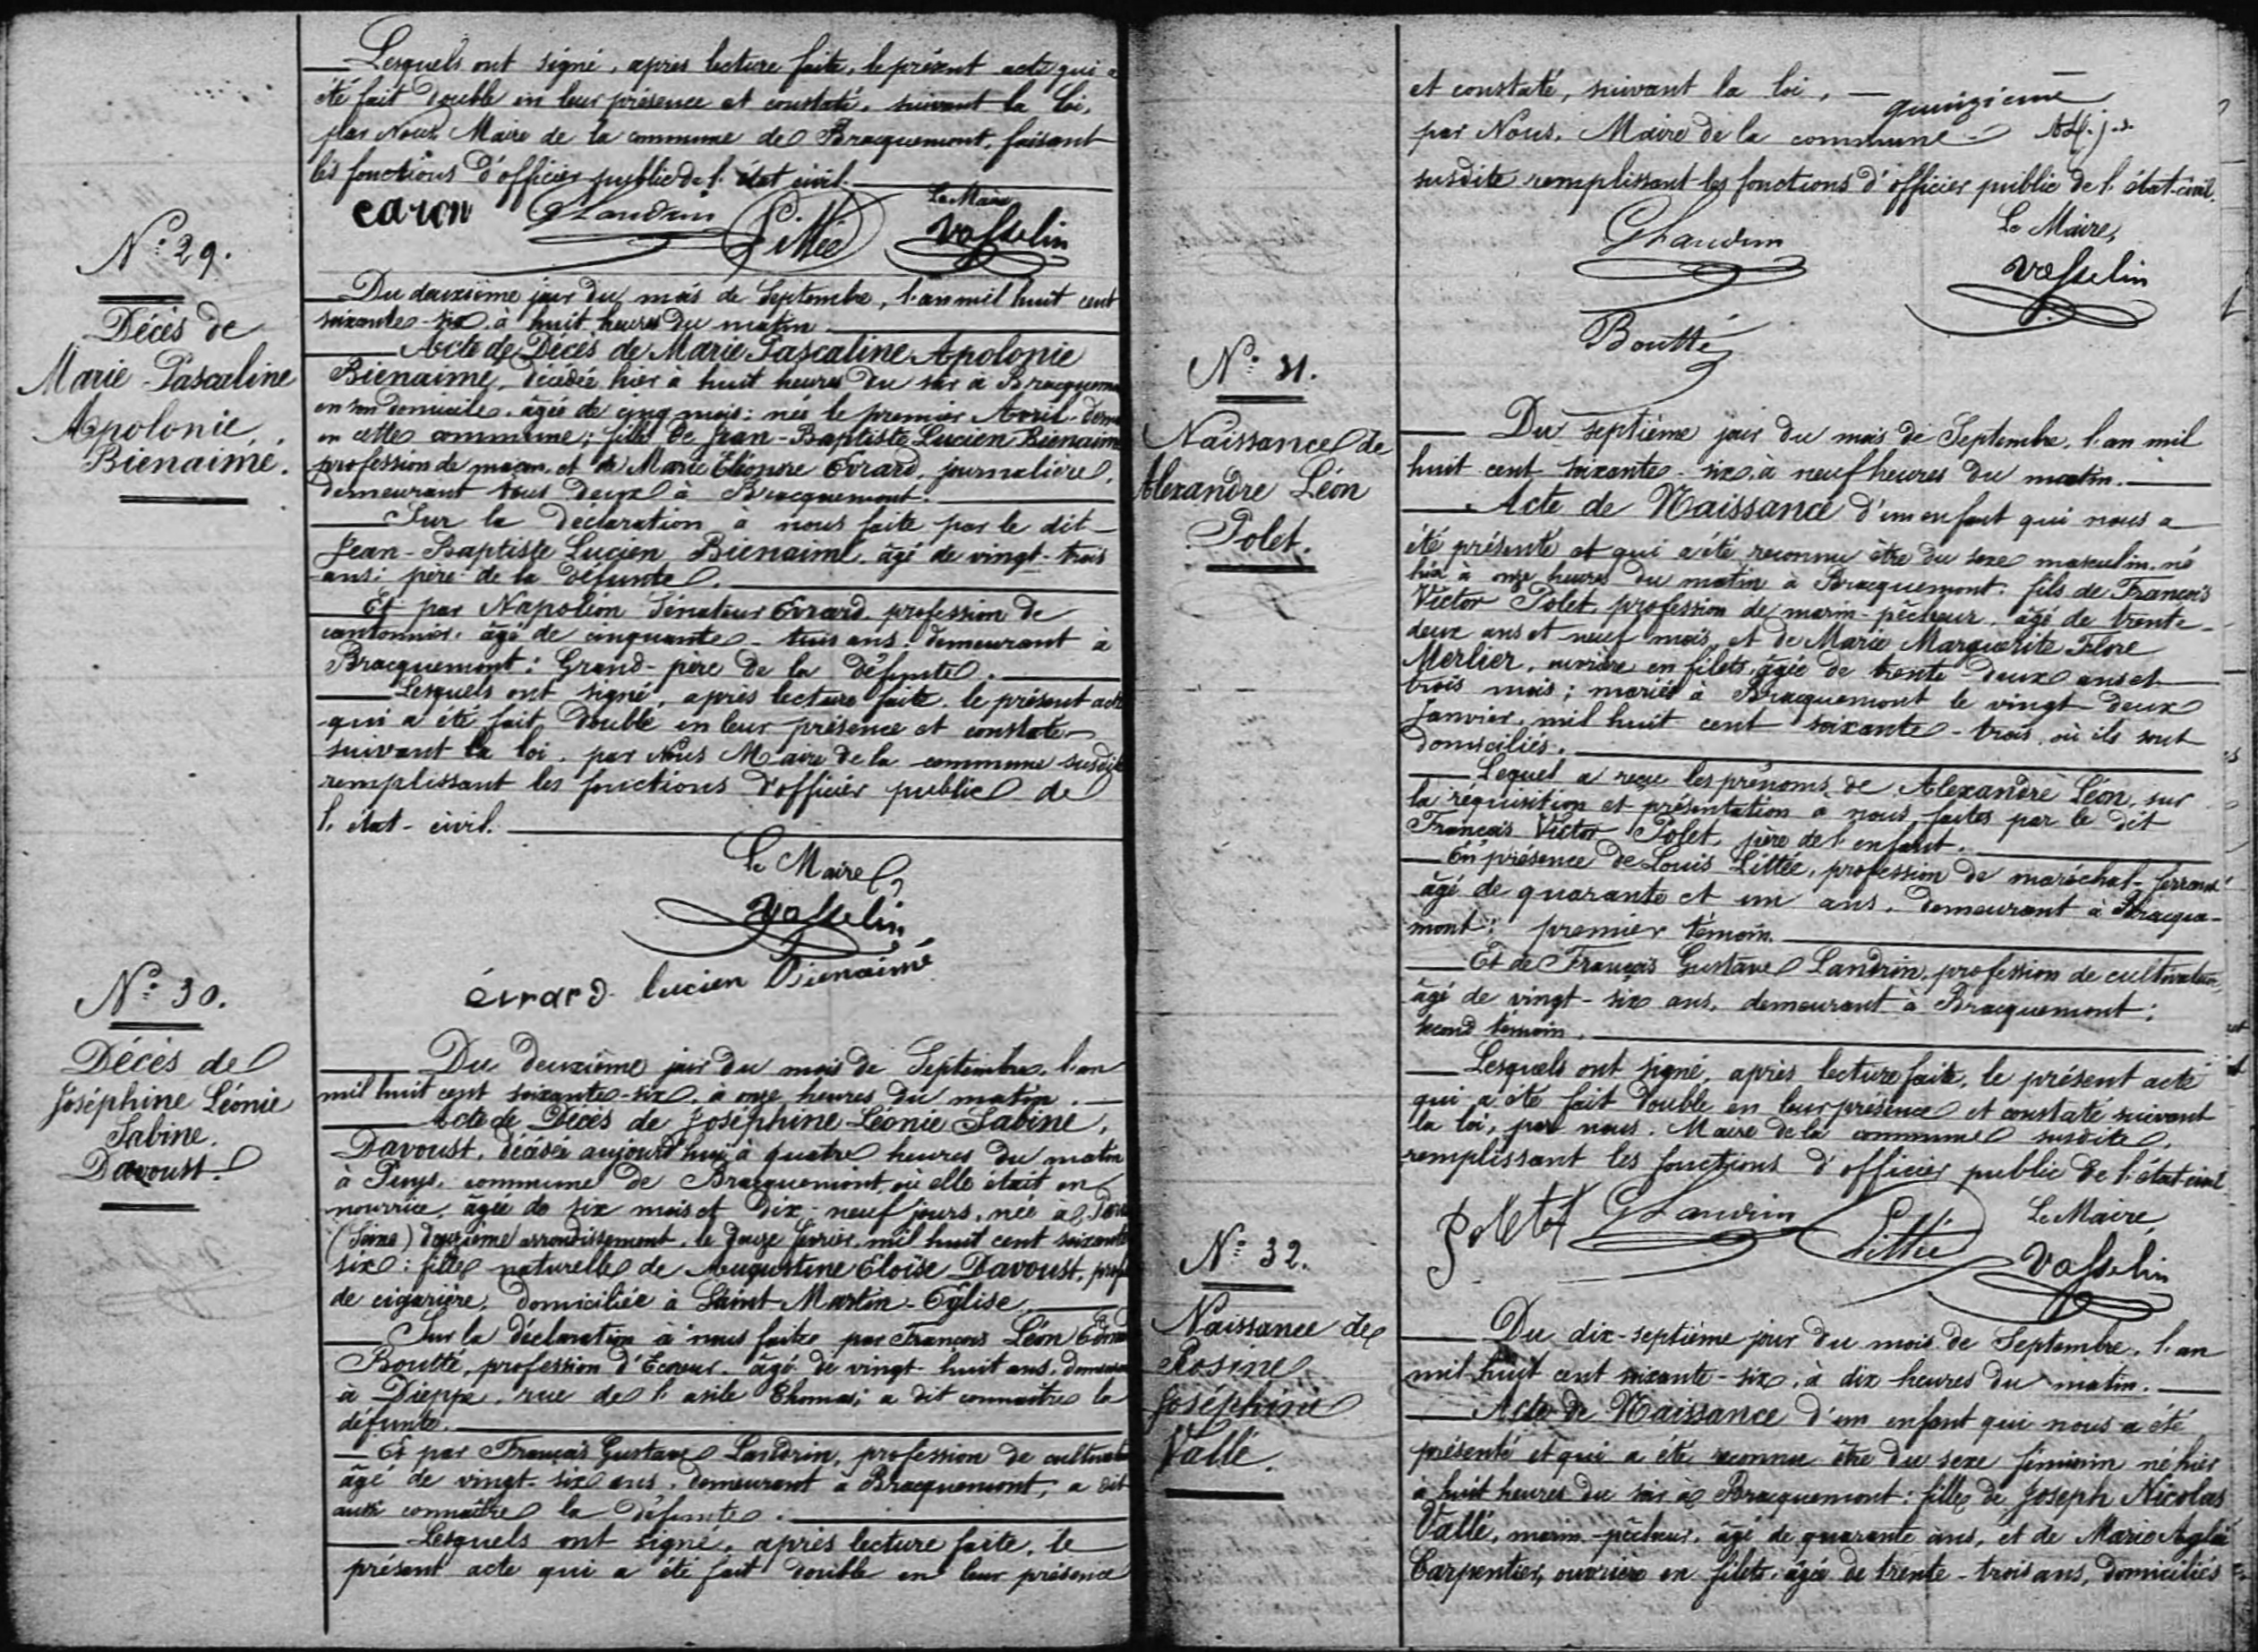 Lesquels ont signé, après lecture faite, le présent acte qui a
été fait double en leur présence et constaté, suivant la loi,
par Nous Maire de la commune de Bracquemont, faisant
les fonctions d'officier public de l'état civil.
caron GLandrin Littée Le Maire
Vasselin
N° 29.
Décès de
Marie-Pascaline
Apolonie
Bienaimé.
Du deuxième jour du mois de Septembre, l'an mil huit cent
soixante-six, à huit heures du matin
Acte de Décès de Marie Pascaline Apolonie
Bienaimé, décédée hier à huit heures du soir à Bracquemo
en son domicile, âgée de cinq mois: née le premier Avril dern
en cette commune; fille de Jean-Baptiste Lucien Bienaimé
profession de maçon et de Marie Eléonore Evrard, journalière,
demeurant tous deux à Bracquemont.
Sur la déclaration à nous faite par le dit
Jean-Baptiste Lucien Bienaimé, âgé de vingt-trois
ans: père de la défunte.
Et par Napoléon Sénateur Evrard, profession de
cantonnier, âgé de cinquante-trois ans, demeurant à
Bracquemont: Grand-père de la défunte.
Lesquels ont signé, après lecture faite, le présent acte
qui a été fait double en leur présence et constaté
suivant la loi, par Nous Maire de la commune susdite
remplissant les fonctions d'officier public de
l'état-civil.
Le Maire,
Vasselin
évrard lucien Bienaimé
N° 30.
Décès de
Joséphine Léonie
Sabine.
Davoust.
Du deuxième jour du mois de Septembre, l'an
mil huit cent soixante-six, à onze heures du matin.
Acte de Décès de Joséphine Léonie Sabine,
Davoust, décédée aujourd'hui à quatre heures du matin
à Puys, commune de Bracquemont, où elle était en
nourrice, âgée de six mois et dix-neuf jours, née à Paris
(Seine) arrondissement, le février mil huit cent soixante
six: fille naturelle de Augustine Eloïse Davoust, prof
de cigarière, domiciliée à Saint-Martin-Eglise.
Sur la déclaration à nous faite par François Léon
Boutté, profession d'Ecoreur, âgé de vingt-huit ans, demeurant
à Dieppe, rue de l'asile Thomas; a dit connaître la
défunte.
Et par François Gustave Landrin, profession de cultivat
âgé de vingt-six ans, demeurant à Bracquemont, a dit
aussi connaître la défunte.
Lesquels ont signé, après lecture faite, le
présent acte qui a été fait double en leur présence
et constaté, suivant la loi, quinzième
par Nous, Maire de la commune
susdite remplissant les fonctions d'officier public de l'état-civil.
GLandrin Le Maire,
Vasselin
Boutté
N° 31.
Naissance de
Alexandre Léon
Polet.
Du septième jour du mois de Septembre, l'an mil
huit cent soixante-six, à neuf heures du matin.
Acte de Naissance d'un enfant qui nous a
été présenté et qui a été reconnu être du sexe masculin, né
hier à onze heures du matin à Bracquemont, fils de François
Victor Polet, profession de marin-pêcheur, âgé de trente-
deux ans et neuf mois, et de Marie Marguerite Flore
Merlier, ouvrière en filets, âgée de trente-deux ans et
trois mois; mariés à Bracquemont le vingt-deux
Janvier, mil huit cent soixante-trois, où ils sont
domiciliés.
Lequel a reçu les prénoms de Alexandre Léon, sur
la réquisition et présentation à nous faites par le dit
François Victor Polet, père de l'enfant.
En présence de Louis Littée, profession de maréchal-ferrant
âgé de quarante et un ans, demeurant à Bracque-
mont: premier témoin.
Et de François Gustave Landrin, profession de cultivateur,
âgé de vingt-six ans, demeurant à Bracquemont;
second témoin.
Lesquels ont signé, après lecture faite, le présent acte
qui a été fait double en leur présence et constaté suivant
la loi, par nous, Maire de la commune susdite,
remplissant les fonctions d'officier public de l'état-civil
Polet GLandrin Littée Le Maire,
Vasselin
N° 32.
Naissance de
Rosine
Joséphine
Vallé.
Du dix-septième jour du mois de Septembre, l'an
mil huit cent soixante-six, à dix heures du matin.
Acte de Naissance d'un enfant qui nous a été
présenté et qui a été reconnu être du sexe féminin né hier
à huit heures du soir à Bracquemont: fille de Joseph Nicolas
Vallé, marin-pêcheur, âgé de quarante ans, et de Marie Aglaé
Carpentier, ouvrière en filets, âgée de trente-trois ans, domiciliés